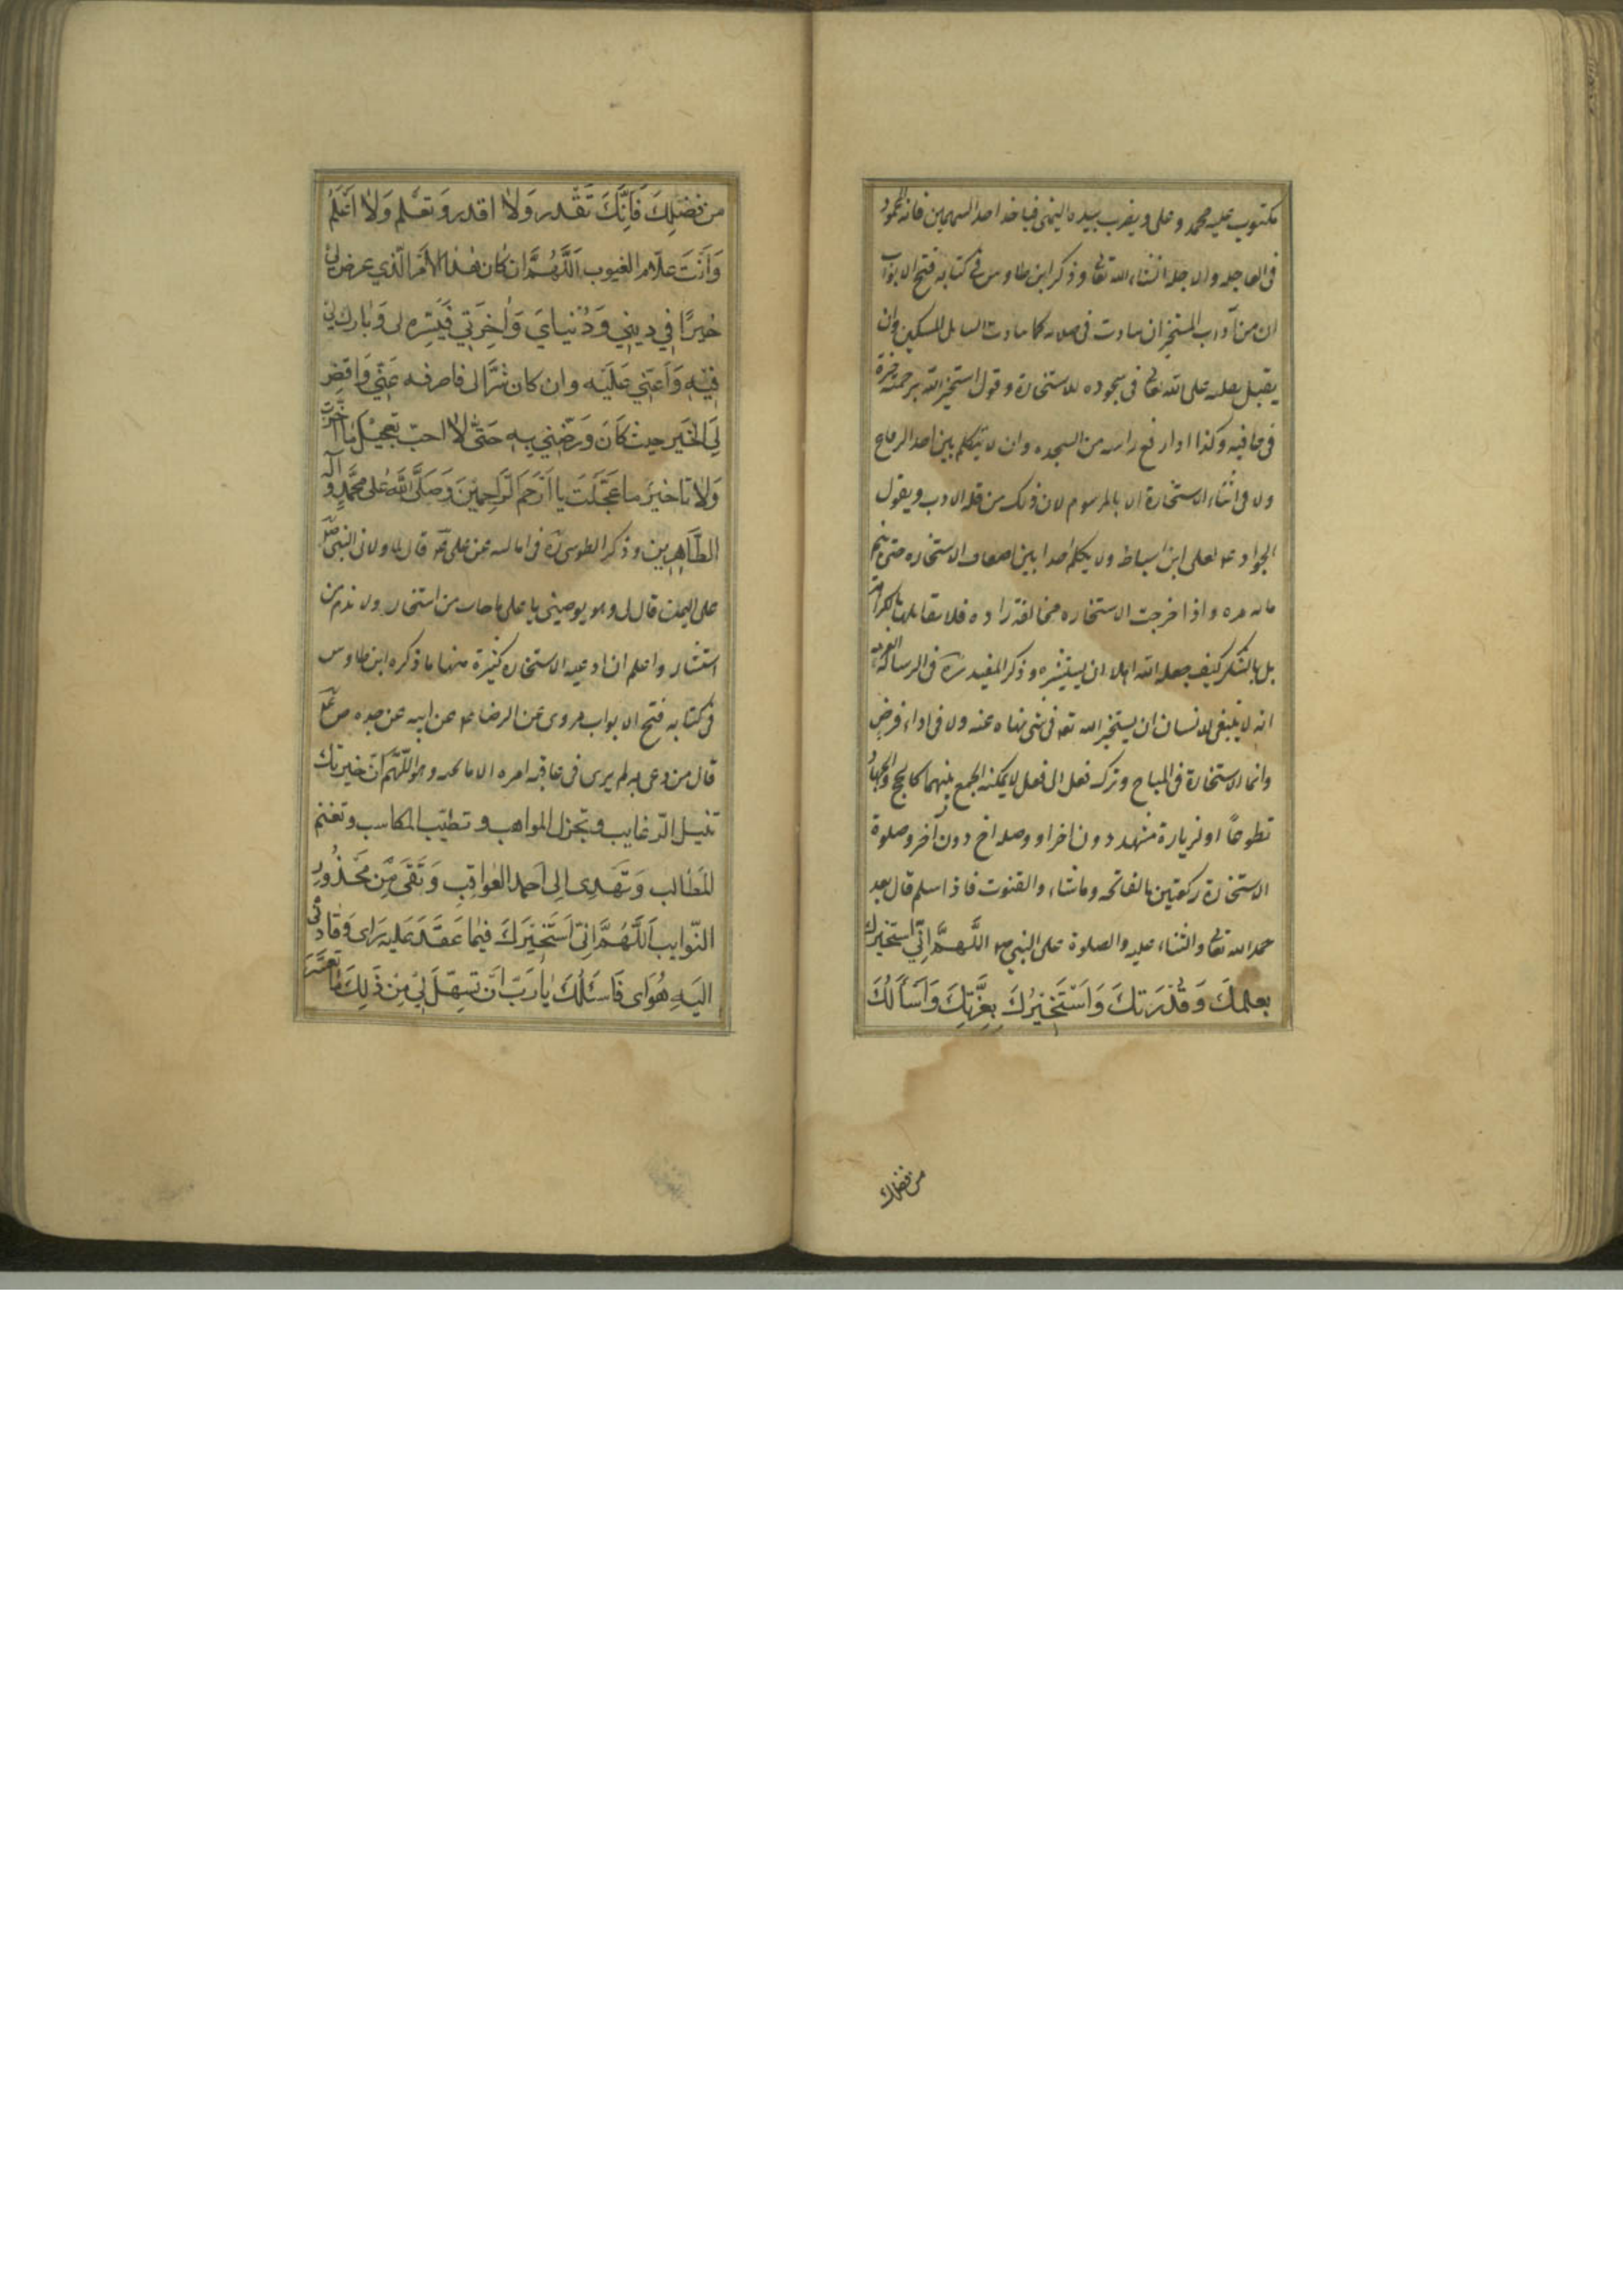 مكتوب عليه محمد وعلى ويضرب بيده اليمنى فياخذ احد السهمين فانه المحمود
فى العاجله والاجله انشاء الله تعالى وذكر ابن طاوس فى كتابه فتح الابواب
ان من آداب المستخير ان يتادب فى صلاته كما يتادب السايل المسكين وان
يقبل بقلبه على الله تعالى فى سجوده للاستخارة وقول استخير الله برحمته خيرة
فى عافيه وكذا اذا رفع راسه من السجده وان لا يتكلم بين اخذ الرقاع
ولا فى اثناء الاستخارة الا بالمرسوم لان ذلك من قلة الادب ويقول
الجواد ع لعلى ابن اسباط ولا يكلم احدا بين اضعاف الاستخاره حتى يتم
مايه مره واذا خرجت الاستخاره مخالفة لمراده فلا يقابلها بالكراهة
بل بالشكر كيف جعله الله اهلا ان يستشيره وذكر المفيد ره فى الرسالة العزيه
انه لا ينبغى للانسان ان يستخير الله تعه فى شى نهاه عنه ولا فى اداء فرض
وانما الاستخارة فى المباح وترك نفل الى نفل لا يمكنه الجمع بينهما كالحج والجهاد
تطوعاً او لزيارة مشهد دون اخر او وصله اخ دون آخر وصلوة
الاستخارة ركعتين بالفاتحه وما شاء والقنوت فاذا سلم قال بعد
حمد الله تعالى والثناء عليه والصلوة على النبى ص اللَّهُمَّ اِنِّى اَسْتَخِيرُكَ
بعِلمِكَ وَقُدْرَتِكَ وَاَسْتَخِيرُكَ بِعِزَّتِكَ وَاَسْأَلُكَ
من فضلك
من فَضلِكَ فَاِنَّكَ تَقْدر وَلاٰ اقدر وَ تعْلم وَلاٰ اَعْلَمُ
وَاَنْتَ علّام الغيوب اَللَّهُمَّ ان كان هٰذا الاَمر الّذي عرض لى
خَيرًا فِي دِينِي وَدُنيايَ وَاٰخِرَتِي فَيَسِّره لى وَبارك لِى
فِيْهِ وَاَعِنّي عَلَيْه وان كان شَرًّا لى فاصرفه عَنّي وَاقضِ
لِيَ الخَير حيث كانَ وَرَضّنِي بِهِ حَتّى لاٰ احبّ تعجيْلَ مٰا اخَّرت
وَلاٰ تاخيرَ ما عَجَّلتَ يا اَرْحَم الرّاحِمِينَ وَصَلَّى اللهُ عَلى محَمَّدٍ وَ آله
الطّاهِرين وذكر الطوسى ره فى اماليه عن على ع قال لما ولانى النبى ص
على اليمن قال لى وهو يوصينى يا على ما حار من استخار ولا ندم من
استشار واعلم ان ادعيه الاستخاره كثيرة منها ما ذكره ابن طاوس
فى كتابه فتح الابواب مروى عن الرضا ع عن ابيه عن جده ص ع
قال من دعى به لم يرى فى عاقبه امره الا ما يحبه وهو اللّهُمَّ انّ خيرتك
تنيل الرّغايب وتجزل المواهب و تطيّب المكاسب و تغنم
المَطالب وَتَهْدِى اِلى اَحمد العَواقِب وَتَقى مِن مَحْذُورِ
النّوايب اَللَّهُمَّ اِنّى اَسْتَخِيرَكَ فيمٰا عَقَدَ عَليه رَاى وَقَادنى
اليْهِ هَواى فَاَسئلُكَ يٰا رَبّ اَن تسهّلَ لِي مِن ذٰلِكَ مٰا تعسَّرَ